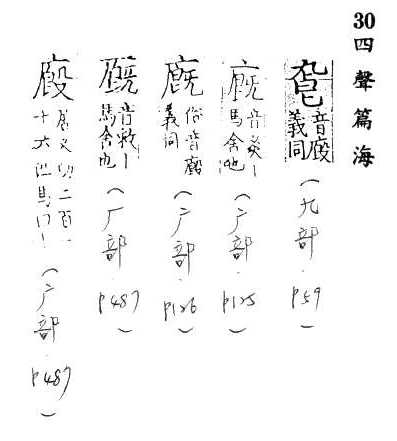 30 四聲篇海
音廄義同 (九部 P59)
廐 馬舍也 (广部 P125)
廐 俗音廄義同 (广部 P126)
音救｜馬舍也 (厂部 P487)
廏 居又切二百一十六匹馬 (广部 P487)